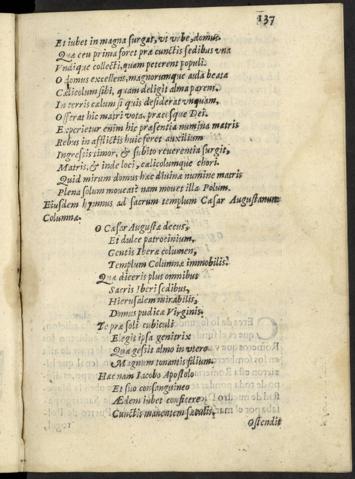 137
Et iubet in magna surgat, vt vrbe, domus.
Quæ ceu prima foret præ cunctis sedibus vna
Vndique collecti, quam peterent populi.
O domus excellens, magnorumque aula beata
Cælicolum sibi, quam deligit alma parens.
In terris cælum si quis desiderat vnquam,
Offerat hic matri vota, precesque Dei.
Experietur enim hic præsentia numina matris
Rebus in afflictis huic feret auxilium
Ingressis timor, & subito reuerentia surgit,
Matris, & inde loci, cælicolumque chori.
Quid mirum domus hæc diuinæ numine matris
Plena solum moueat? nam mouet illa Polum.
Eiusdem hymnus ad sacrum templum Cæsar Augustanum
Columnæ.
O Cæsar Augusta decus,
Et dulce patrocinium,
Gentis Iberæ columen,
Templum Columnæ immobilis.
Quæ diceris plus omnibus
Sacris Iberi sedibus,
Hierusalem mirabilis,
Domus pudicæ Virginis.
Te præ soli cubiculi
Elegit ipsa genitrix
Quæ gessit almo in vtero
Magnum tonantis filium.
Hæc nam Iacobo Apostolo
Et suo consanguineo
Ædem iubet conficere
Cunctis manentem sæculis.
Ostendit